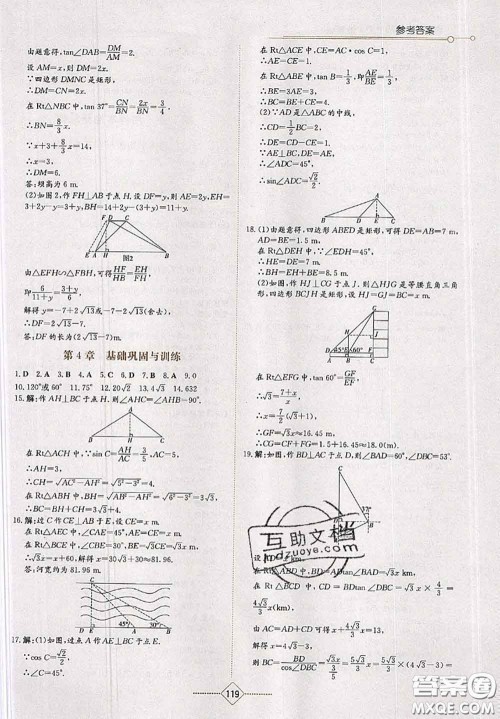 参考答案
由题意得，tan∠DAB=DM/AM=2.
设 AM=x，则 DM=2x.
∵四边形 DMNC 是矩形，
∴DM=CN=2x.
在 Rt△NBC 中，tan 37°=CN/BN=2x/BN=3/4，
∴BN=8/3 x.
∵x+3+8/3 x=14，
∴x=3，
∴DM=6.
答：坝高为 6 m.
(2)如图2，作 FH⊥AB 于点 H，设 DF=y，则 AE=2y，EH=
3+2y-y=3+y，BH=14+2y-(3+y)=11+y.
图2
由△EFH∽△FBH，可得 HF/HB=EH/FH，
即 6/(11+y)=(3+y)/6.
解得 y=-7+2√13或-7-2√13(舍去)
∴DF=2√13-7.
答：DF 的长为(2√13-7)m.
第 4 章 基础巩固与训练
1. D 2. A 3. B 4. A 5. C 6. D 7. B 8. A 9. 0
10. 120°或60° 11. 75° 12. 20√2 13. 4√3 14. 632
15. 解：作 AH⊥BC 于点 H，∠AHC=∠AHB=90°.
在 Rt△AHC 中，∵sin C=AH/AC=3/5，
∴AH=3，
∴CH=√(AC²-AH²)=√(5²-3²)=4.
在 Rt△ABH 中，
∵BH=√(AB²-AH²)=√(4²-3²)=√7，
∴BC=BH+CH=4+√7.
16. 解：过 C 作 CE⊥AB 于点 E，设 CE=x m.
在 Rt△BCE 中，∠CBE=45°，∴BE=CE=x m.
在 Rt△ACE 中，∠CAE=30°，∴AE=√3x m.
∵AB=60 m，
∴√3x=x+60.
解得x=30√3+30≈81.96.
答：河宽约为 81.96 m.
17. 解：(1)如图，作 AE⊥BC 于点 E.
∵cos C=√2/2，
∴∠C=45°.
在 Rt△ACE 中，CE=AC·cos C=1，
∴AE=CE=1.
在 Rt△ABE 中，tan B=1/3，即AE/BE=1/3，
∴BE=3AE=3，
∴BC=BE+CE=4.
(2)∵AD 是△ABC 的中线，
∴CD=1/2BC=2，
∴DE=CD-CE=1.
∵AE⊥BC，DE=AE，
∴∠ADC=45°，
∴sin∠ADC=√2/2.
18. 解：(1)由题意得，四边形 ABED 是矩形，可得 DE=AB=7 m，
AD=BE=1.5 m.
在 Rt△DEH 中，∵∠EDH=45°，
∴HE=DE=7 m，
∴BH=HE+BE=8.5 m.
(2)如图，作 HJ⊥CG 于点 J，则△HJG 是等腰三角形，
四边形 BCJH 是矩形，设 HJ=GJ=BC=x m.
在 Rt△EFG 中，tan 60°=GF/EF，
∴√3=(7+x)/x，
∴GF=√3x≈16.45，
∴CG=CF+FG=1.5+16.45≈18.0(m).
19. 解：如图，作 BD⊥AC 于点 D，则∠BAD=60°，∠DBC=53°.
在 Rt△BCD 中，CD=BDtan∠DBC=√3x×4/3=
4√3/3 x(km).
由 AC=AD+CD，得 x+4√3/3 x=
则 BC=BD/cos∠DBC
119
互助文档
hdzuoye.com
答案圈